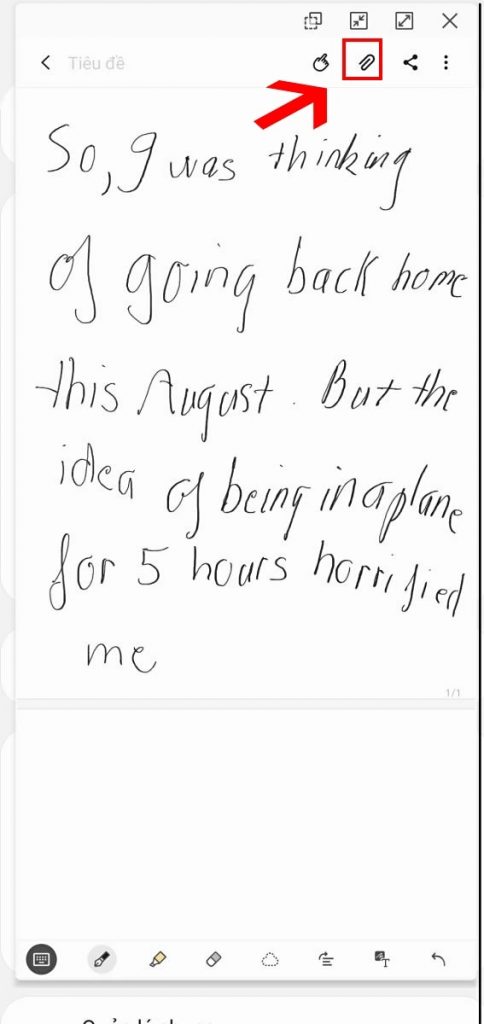 Tiêu đề
So, I was thinking
of going back home
this August. But the
idea of being in a plane
for 5 hours horrified
me
1/1